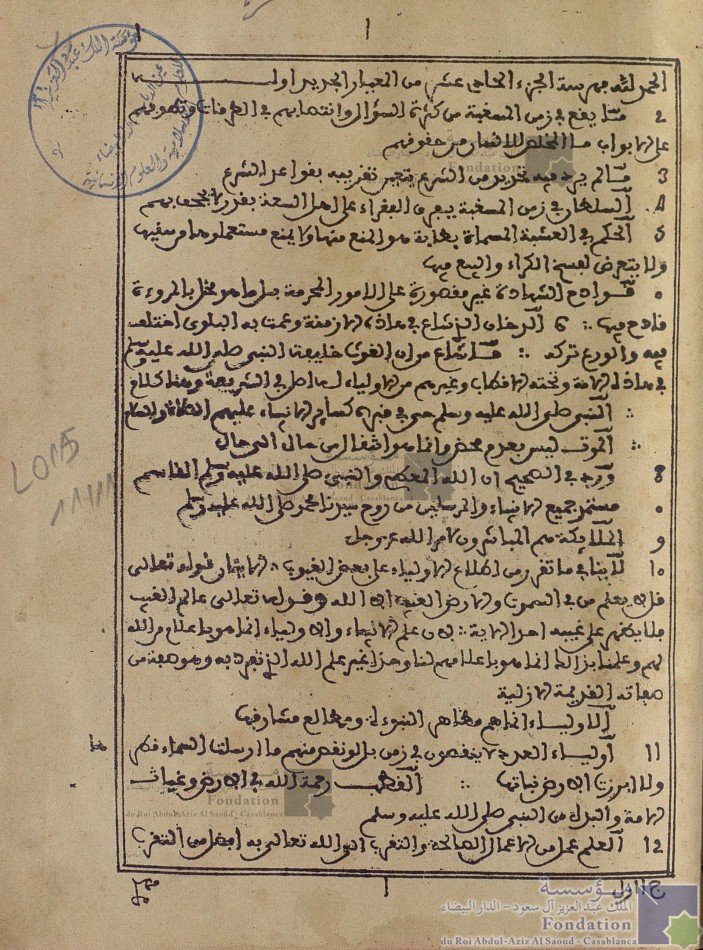 1
الحمد لله فهرسة الجزء الحادي عشر من المعيار الجديد اولـ
2 مسا يفع في زمن المسغبة من كثرة السؤال وانتهابهم في الطرفات وتطوفهم
على الابواب
3 مسالم يرد فيه تحرير من الشرع يتعين تفريبه بفواعد الشرع
4 السلطان في زمن المسغبة يبرق الففراء على اهل السعة بفدر لا يجحف بهم
5 الحكم في العشبة المسماة بطابة هو المنع منها ولا يمنع مستعملوها من سفيها
ولا يتعرض لبسخ الكراء والبيع فيها
فوادح الشهادة غير مفصورة على الامور المحرمة بل ما هو مخل بالمروءة
فادح فيها ؞ 6 الدخان الذي شاع في هاذه الازمنة وعمت به البلوى اختلف
فيه والورع تركه ؞ مسا شاع من ان الغوث خليفة النبي صلى الله عليه وسلم
في هاذه الامة وتحته الافطاب وغيرهم من الاولياء له اصل في الشريعة
؞ النبي صلى الله عليه وسلم حي في فبره كساير الانبياء عليهم الصلاة والسلام
؞ الموت ليس بعدم محض وانما هو انتفال من حال الى حال
8 ورد في الصحيح ان الله المعطي والنبي صلى الله عليه وسلم الفاسم
مستمد جميع الانبياء والمرسلين من روح سيدنا محمد صلى الله عليه وسلم
9 الملايكة هم المباشرون لامر الله عز وجل
10 لا ينافي ما تفرر من اطلاع الاولياء على بعض الغيوب ؞ الايتان فوله تعالى
فل لا يعلم من في السموت والارض الغيب الا الله وفوله تعالى عالم الغيب
فلا يظهر على غيبه احدا الاية ؞ لان علم الانبياء والاولياء انما هو باعلام من الله
لهم وعلمنا بذالك انما هو باعلامهم لنا وهذا غير علم الله الذي تفرد به وهو صفة من
صفاته الفديمة الازلية
الاولياء انما هم مظاهر النبوءة ومطالع مشارفها
11 اولياء العدد لا ينفصون في زمن بل لو نفص منهم ما ارسلت السماء فطرها
ولا ابرزت الارض نباتها ؞ الفطب رحمة الله في الارض وغياث
الامة والبدل من النبي صلى الله عليه وسلم
12 العلم عمل من الاعمال الصالحة والتفرب الى الله تعالى به افضل من التفرب
1
LO15
مؤسسة
الملك عبد العزيز آل سعود - الدار البيضاء
Fondation
du Roi Abdul-Aziz Al Saoud - Casablanca